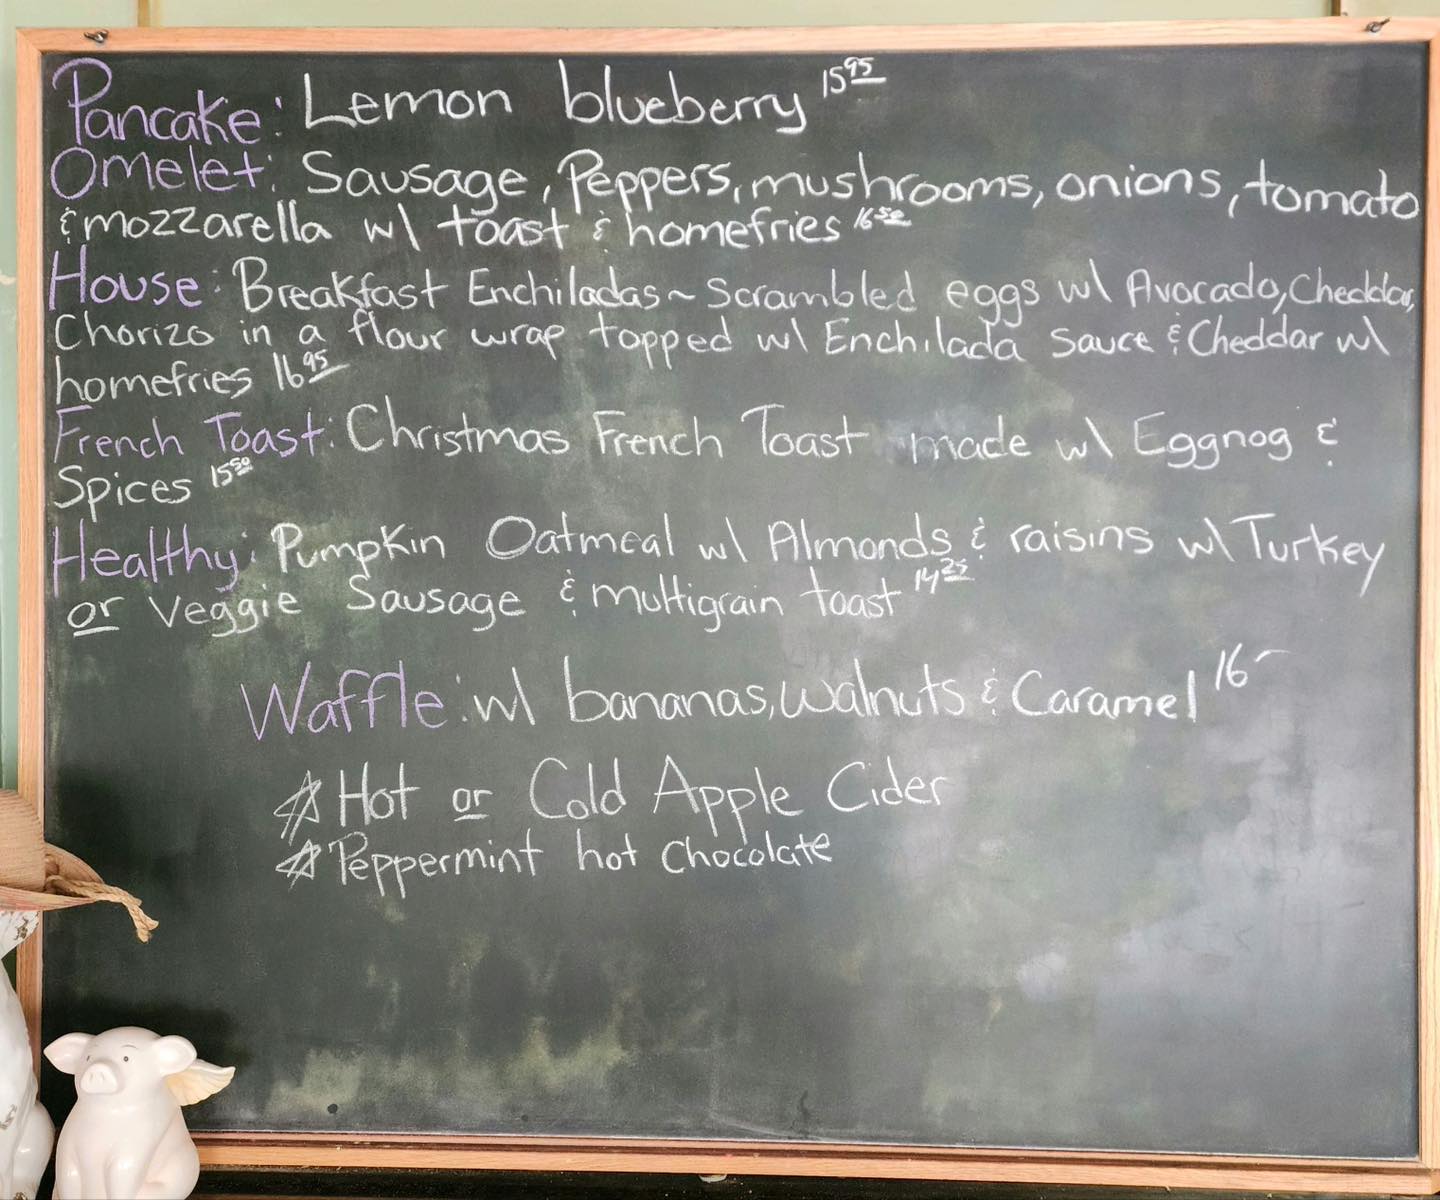 Pancake: Lemon blueberry 15 95
Omelet: Sausage, Peppers, mushrooms, onions, tomato
& mozzarella w/ toast & homefries 16 50
House: Breakfast Enchiladas ~ Scrambled eggs w/ Avocado, Cheddar,
Chorizo in a flour wrap topped w/ Enchilada Sauce & Cheddar w/
homefries 16 95
French Toast: Christmas French Toast made w/ Eggnog &
Spices 15 50
Healthy: Pumpkin Oatmeal w/ Almonds & raisins w/ Turkey
or Veggie Sausage & multigrain toast 14 25
Waffle: w/ bananas, walnuts & Caramel 16-
* Hot or Cold Apple Cider
* Peppermint hot Chocolate